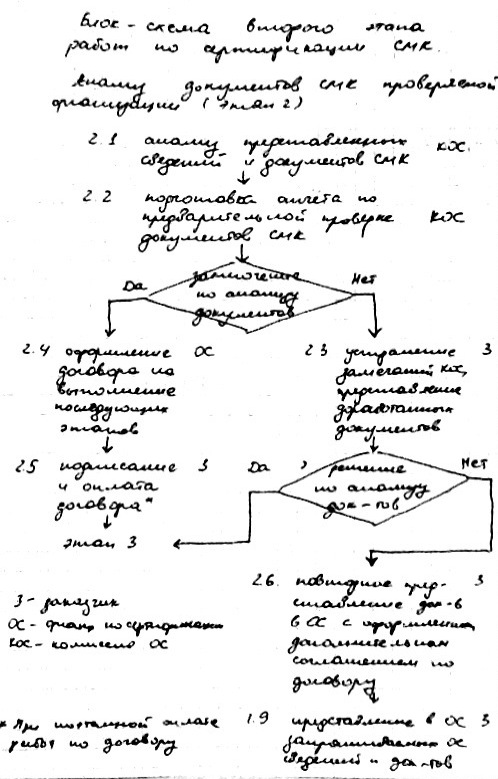 Блок-схема второго этапа
работ по сертификации СМК.
Анализ документов СМК проверяемой
организации (этап 2)
2.1 анализ представленных КОС
сведений и документов СМК
2.2 подготовка отчета по
предварительной проверке КОС
документов СМК
заключение
по анализу
документов
Да
Нет
2.4 оформление ОС
договора на
выполнение
последующих
этапов
2.5 подписание З
и оплата
договора*
этап 3
2.3 устранение З
замечаний КОС,
представление
доработанных
документов
Да
решение
по анализу
док-тов
Нет
2.6. повторное пред- З
ставление док-в
в ОС с оформлением
дополнительным
соглашением по
договору
1.9 представление в ОС З
запрашиваемых ОС
сведений и док-тов
З - заказчик
ОС - орган по сертификации
КОС - комиссия ОС
* При поэтапной оплате
работ по договору